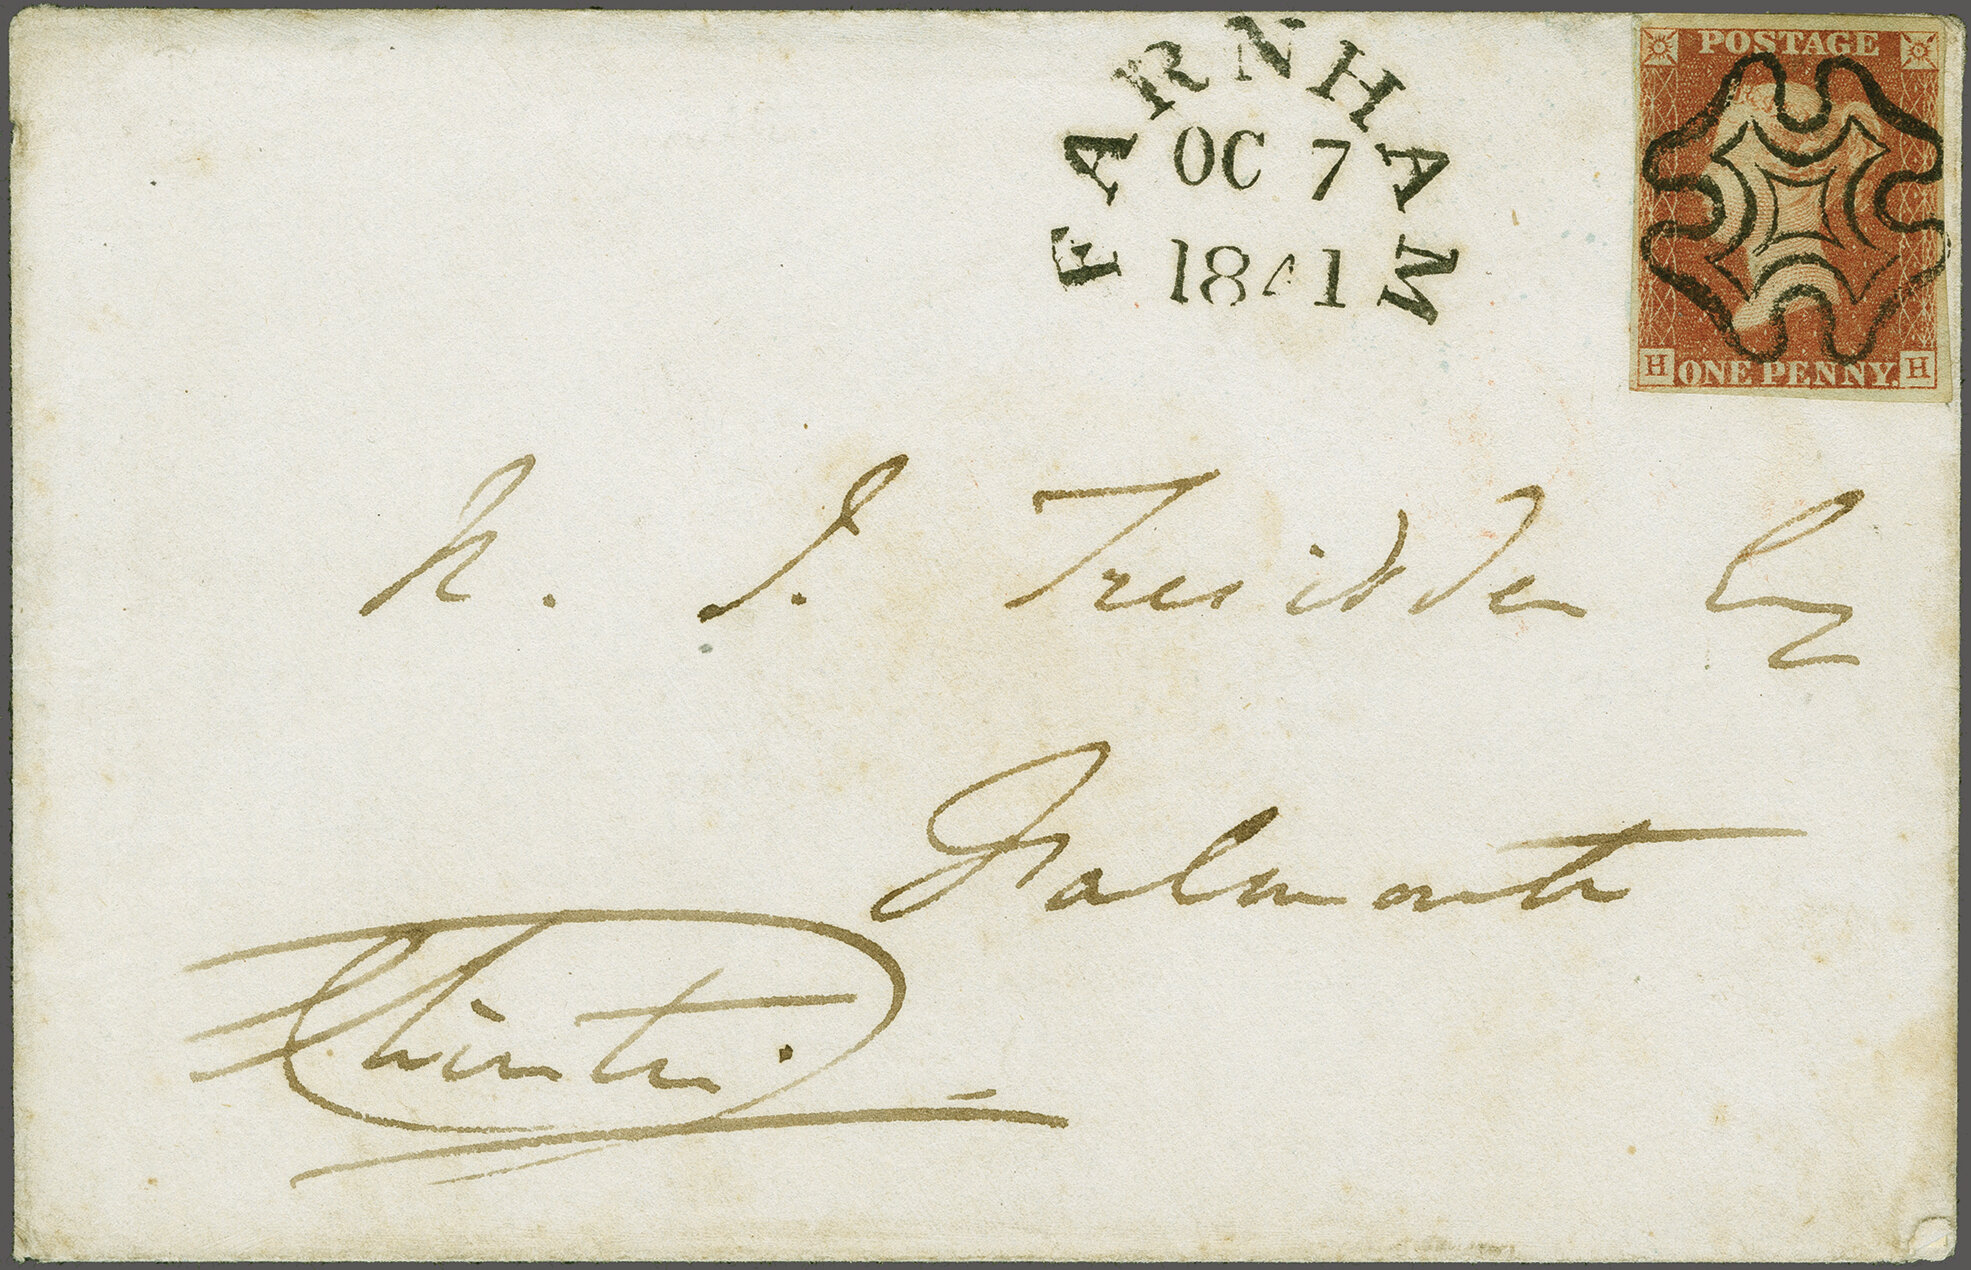 FARNHAM
OC 7
1841
POSTAGE
H ONE PENNY. H
N. J. Tresidder Esq
Falmouth